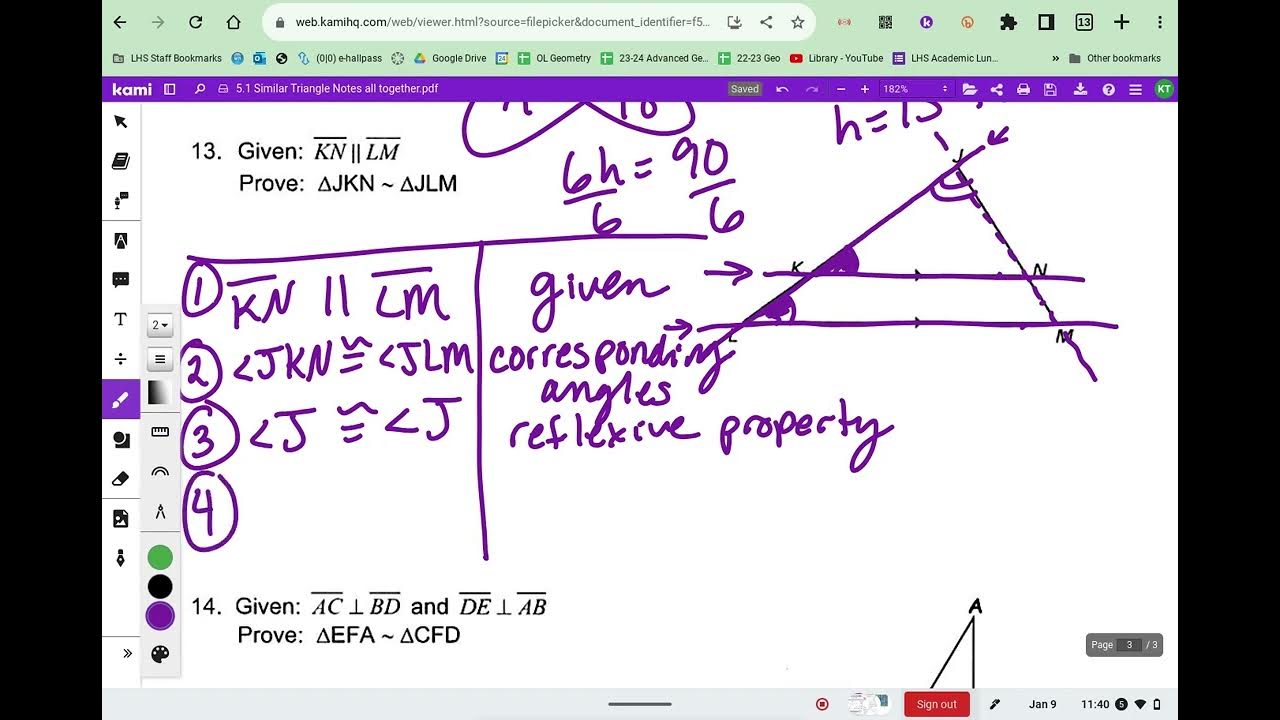 web.kamihq.com/web/viewer.html?source=filepicker&document_identifier=f5...
13
LHS Staff Bookmarks
(0|0) e-hallpass
Google Drive
OL Geometry
23-24 Advanced Ge...
22-23 Geo
Library - YouTube
LHS Academic Lun...
Other bookmarks
kami
5.1 Similar Triangle Notes all together.pdf
Saved
182%
KT
h=15
13. Given: KN || LM
Prove: ΔJKN ~ ΔJLM
6h = 90
6 6
J
K
N
L
M
① KN || LM given
② <JKN ≅ <JLM corresponding
angles
③ <J ≅ <J reflexive property
④
T
2
14. Given: AC ⊥ BD and DE ⊥ AB
Prove: ΔEFA ~ ΔCFD
A
Page 3 / 3
Sign out
Jan 9
11:40
5